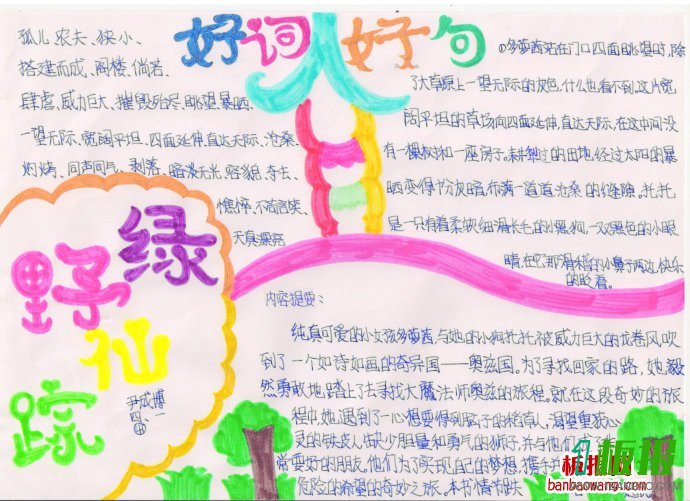 好词好句
孤儿、农夫、狭小、
搭建而成、阁楼、倘若、
肆虐、威力巨大、摧毁殆尽、眺望、暴晒、
一望无际、宽阔平坦、四面延伸、直达天际、沧桑、
灼烤、同声同气、剥落、暗淡无光、容貌、夺去、
憔悴、不苟言笑、
天真漂亮
①多萝茜站在门口四面眺望时,除
了大草原上一望无际的灰色,什么也看不到,这片宽
阔平坦的草场向四面延伸,直达天际,在这中间没
有一棵树和一座房子,耕犁过的田地,经过太阳的暴
晒变得
布满一道道沧桑的缝隙。托托
是一只有着柔软细滑长毛的小黑狗,一双黑色的小眼
睛在它那滑稽的小鼻子两边,快乐
的眨着。
绿
野
仙
踪
内容提要:
纯真可爱的小女孩多萝茜与她的小狗托托被威力巨大的龙卷风吹
到了一个如诗如画的奇异国——奥兹国。为了寻找回家的路,她毅
然勇敢地踏上了去寻找大魔法师奥兹的旅程,就在这段奇妙的旅
程中,她遇到了一心想要得到脑子的稻草人,渴望重获心
灵的铁皮人,缺少胆量和勇气的狮子,并与他们
常要好的朋友,他们为了实现自己的梦想,携手
危险的希望的奇妙之旅。本书情节
板报
板报网
banbaowang.com